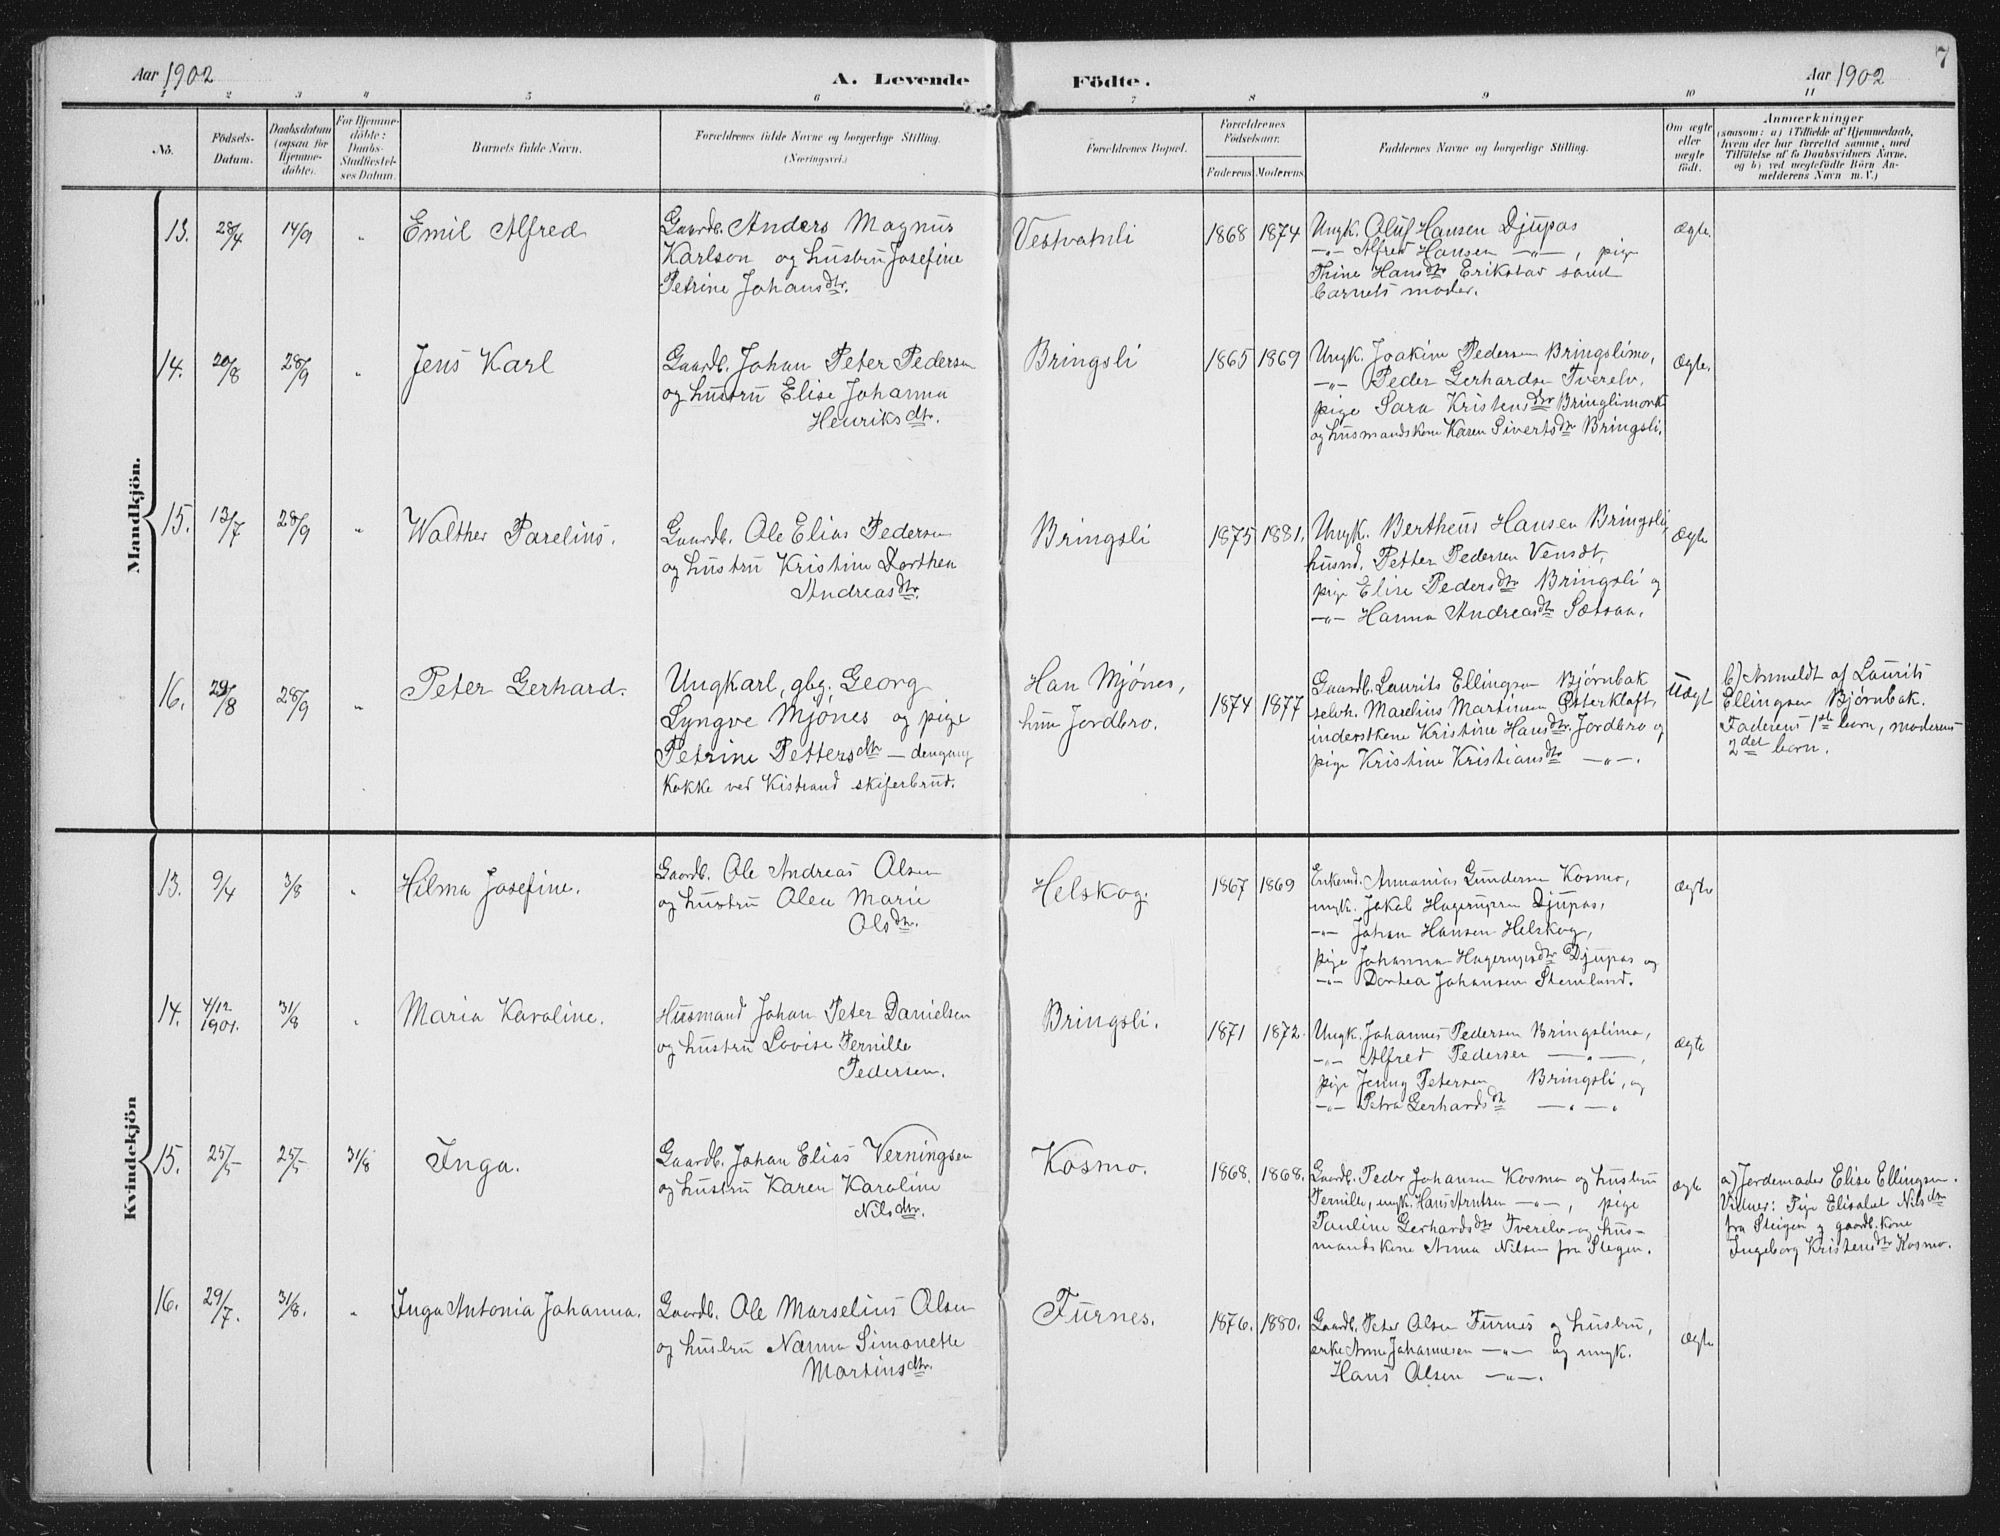 Aar 1902
A. Levende
Födte.
Aar 1902
7
1 2 3 4 5 6 7 8 9 10 11
No.
Födsels-
Datum.
Daabsdatum
(ogsaa for
Hjemme-
döbte).
For Hjemme-
döbte:
Daabs-
Stadfæstel-
ses Datum.
Barnets fulde Navn.
Forældrenes fulde Navne og borgerlige Stilling.
(Næringsvei.)
Forældrenes Bopæl.
Forældrenes
Födselsaar.
Faderens Moderens
Faddernes Navne og borgerlige Stilling.
Om ægte
eller
uægte
födt.
Anmærkninger
(saasom: a) i Tilfælde af Hjemmedaab,
hvem der har forrettet samme, med
Tilföielse af to Daabsvidners Navne,
og b) ved uægtefödte Börn An-
melderens Navn m. V.)
Mandkjön.
13. 28/4 14/9 " Emil Alfred
Gaardb. Anders Magnus
Karlson og hustru Josefine
Petrine Johansdtr.
Vestvatnli
1868 1874
Ungk. Oluf Hansen Djupas
-"- Alfred Hansen -"-, pige
Thine Hansdtr Erikstad samt
barnets moder.
Ægte.
14. 20/8 28/9 " Jens Karl
Gaardb. Johan Peter Pedersen
og hustru Elise Johanna
Henriksdtr.
Bringsli
1865 1869
Ungk. Joakim Pedersen Bringslimo,
-"- Peder Gerhardsen Tverelv,
pige Sara Kristensdtr Bringslimork
og husmandskone Karen Sivertsdtr Bringsli.
Ægte.
15. 13/7 28/9 " Walther Parelius.
Gaardb. Ole Elias Pedersen
og hustru Kristine Dorthea
Andreasdtr.
Bringsli
1875 1881.
Ungk. Bertheus Hansen Bringsli,
husmd. Petter Pedersen Vensdt,
pige Elise Pedersdtr Bringsli og
-"- Hanna Andreasdtr Sætsaa.
Ægte
16. 29/8 28/9 " Peter Gerhard.
Ungkarl, gbg. Georg
Lyngve Mjönes og pige
Petrine Pettersdtr — dengang
kokke ved Kistrand skiferbrud.
Han Mjönes,
hun Jordbro.
1874 1877
Gaardb. Laurits Ellingsen Bjørnbak
selvh. Maselius Martinsen Østerkloft,
inderstkone Kristine Hansdtr. Jordbro og
pige Kristine Kristiansdtr -"-.
Uægte
b) Anmeldt af Laurits
Ellingsen Bjørnbak.
Faderens 1ste barn, moderens
2det barn.
Kvindekjön
13. 9/4 3/8 " Hilma Josefine.
Gaardb. Ole Andreas Olsen
og hustru Olea Marie
Olsdtr.
Helskog
1867 1869
Enkemd. Annanias Gundersen Kosmo,
ungk. Jakob Hagerupsen Djupas,
-"- Johan Hansen Helskog,
pige Johanna Hagerupsdtr Djupas og
-"- Dortea Johansen Stemland.
ægte
14. 4/12 1901. 31/8 " Maria Karoline.
Husmand Johan Peter Danielsen
og hustru Lovise Pernille
Pedersen.
Bringsli.
1871 1872.
Ungk. Johannes Pedersen Bringslimo,
-"- Alfred Pedersen -"-,
pige Jenny Petersen Bringsli, og
-"- Petra Gerhardsdtr -"-
ægte
15. 25/5 25/5 31/8 Inga.
Gaardb. Johan Elias Verningsen
og hustru Karen Karoline
Nilsdtr.
Kosmo.
1868. 1868.
Gaardb. Peder Johansen Kosmo og hustru
Pernille, ungk. Hans Arntsen -"-, pige
Pauline Gerhardsdtr Tverelv og hus-
mandskone Anna Nilsen fra Stegen.
ægte
a) Jordemoder Elise Ellingsen.
Vidner: Pige Elisabet Nilsdtr
fra Steigen og gaardb.kone
Ingeborg Kristensdtr Kosmo.
16. 29/7. 31/8. " Inga Antonia Johanna.
Gaardb. Ole Marselius Olsen
og hustru Nanna Simonette
Martinsdtr.
Furnes.
1876. 1880.
Gaardb. Peter Olsen Furnes og hustru,
enke Anne Johannesen -"- og ungk.
Hans Olsen -"-.
Ægte